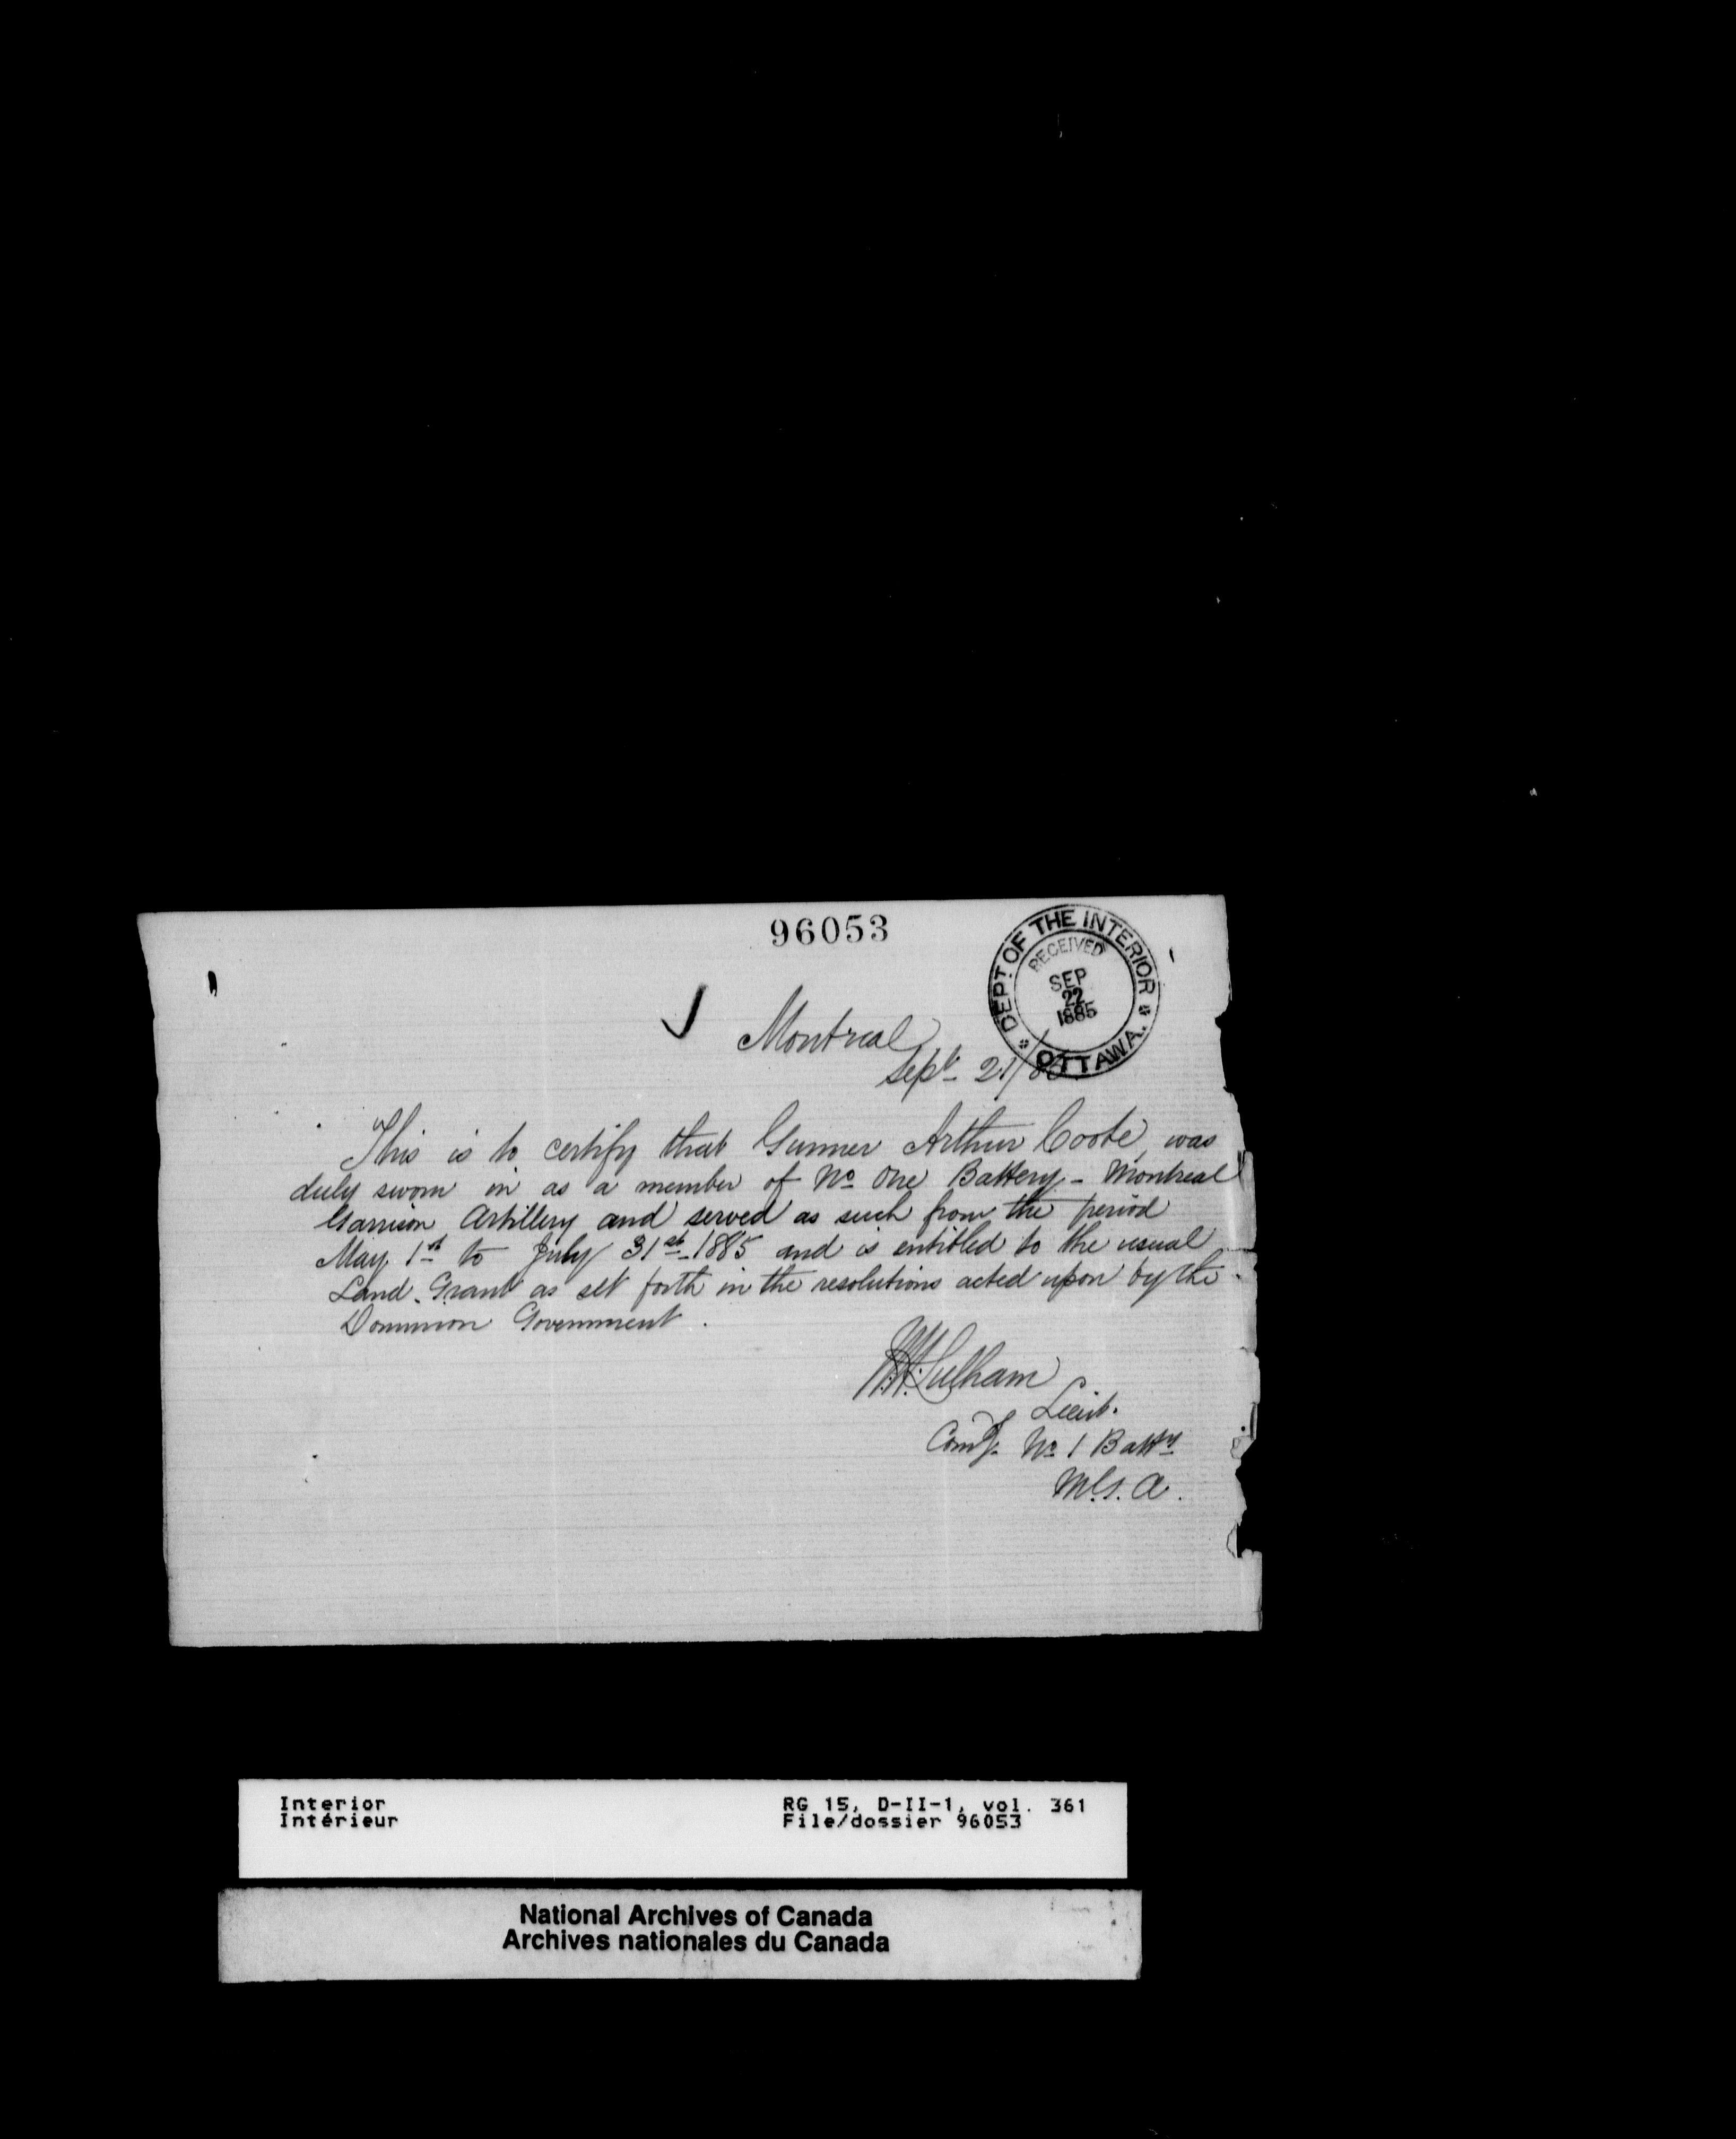 96053
DEPT OF THE INTERIOR
RECEIVED
SEP
22
1885
OTTAWA.
Montreal
Sept 21/85
This is to certify that Gunner Arthur Coote, was
duly sworn in as a member of No One Battery - Montreal
Garrison Artillery and served as such from the period
May 1st to July 31st 1885 and is entitled to the usual
Land Grant as set forth in the resolutions acted upon by the
Dominion Government.
Fulham
Lieut.
Comdg. No 1 Batty
M.G.A.
Interior
Intérieur
RG 15, D-II-1, vol. 361
File/dossier 96053
National Archives of Canada
Archives nationales du Canada